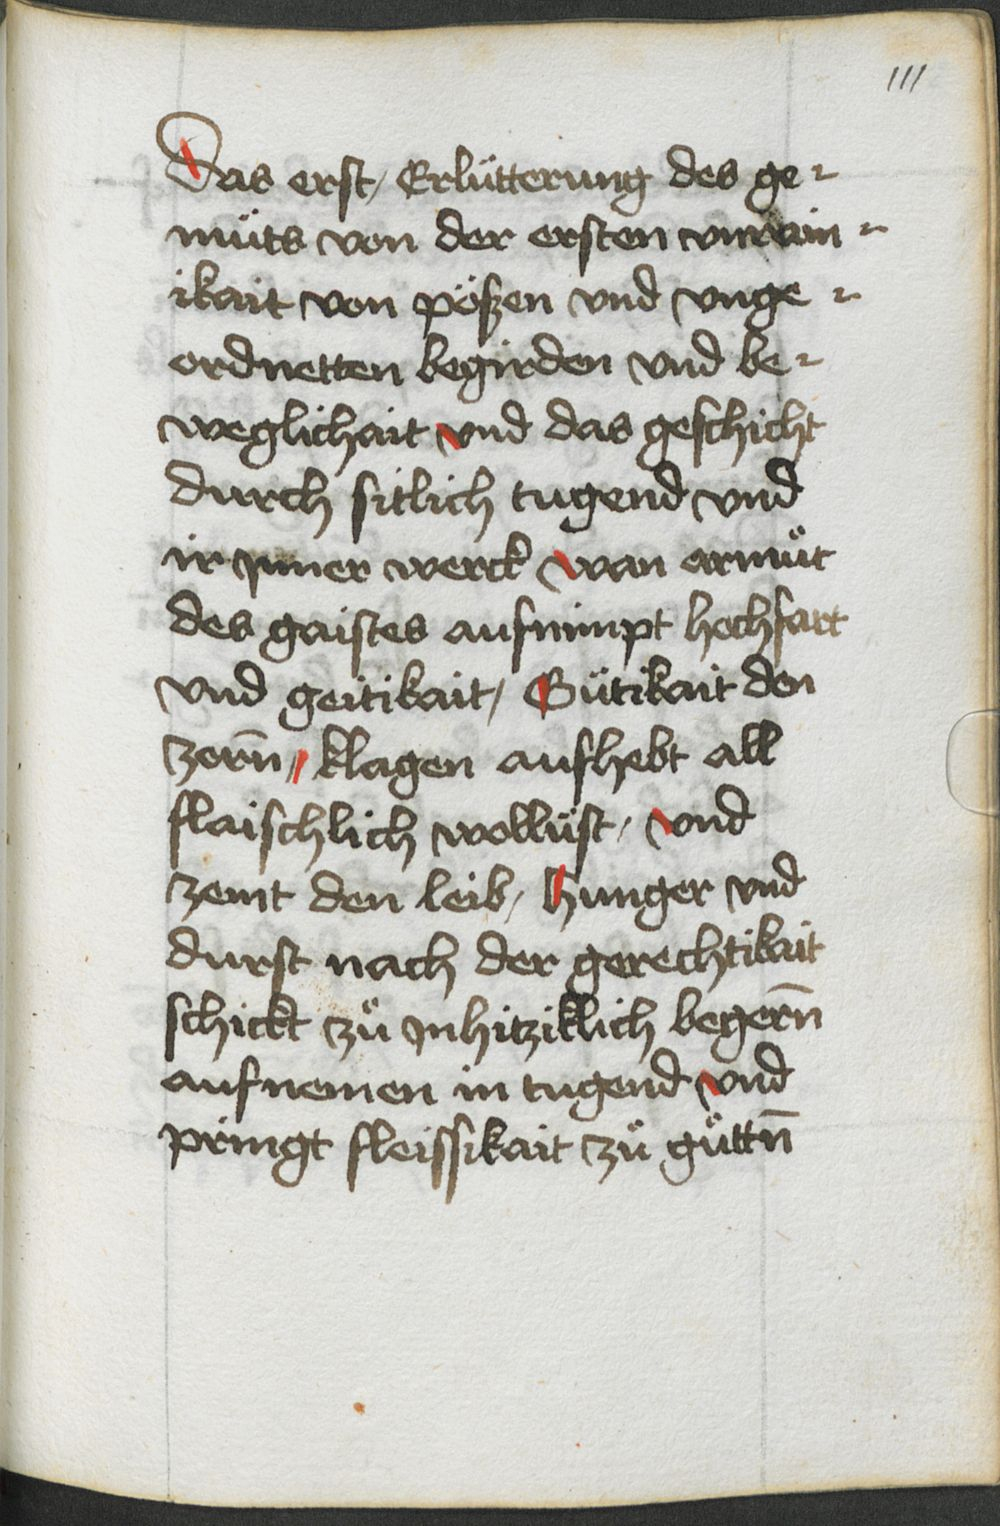 111
Das erst / Erlütterung des ge-
müts von der ersten vnrain-
ikait von pöszen vnd vnge-
ordnetten begirden vnd be-
weglichait vnd das geschicht
durch sitlich tugend vnd
ir jnner werck wan armüt
des gaistes aufnimpt hochfart
vnd geitikait / Gütikait den
zorn̄ / klagen aufhebt all
flaischlich wollüst / vnd
zemt den leib / Hunger vnd
durst nach der gerechtikait
schickt zů jnhitziklich begern̄
aufnemen in tugend vnd
pringt fleissikait zů gůttn̄